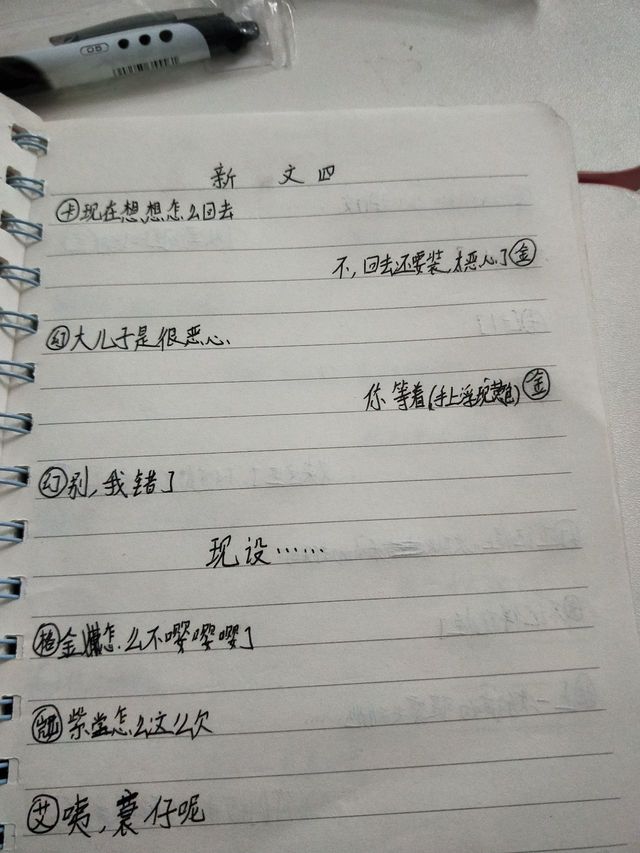 05
新 文四
卡 现在想想怎么回去
不,回去还要装,太恶心了 金
幻 大儿子是很恶心
你等着(手上浮现) 金
幻 别,我错了
现设……
格 金怎么不嘤嘤嘤了
紫堂怎么这么欠
艾 咦,蓑仔呢